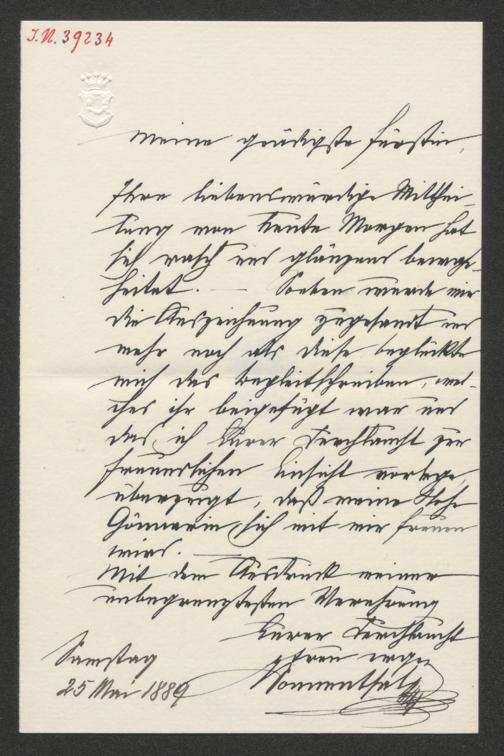 I.N. 39234
Meine gnädigste Fürstin,
Ihre liebenswürdige Mitthei-
lung von heute Morgen hat
sich rasch und glänzend bewahr-
heitet. — Soeben wurde mir
die Auszeichnung zugesandt und
mehr noch als diese beglückte
mich das Begleitschreiben, wel-
ches ihr beigefügt war und
das ich Eurer Durchlaucht zur
freundlichen Einsicht vorlege,
überzeugt, daß meine Hohe
Gönnerin sich mit mir freuen
wird.
Mit dem Ausdruck meiner
unbegrenztesten Verehrung
Eurer Durchlaucht
treu erge
Sonnenthal
Samstag
25 Mai 1889